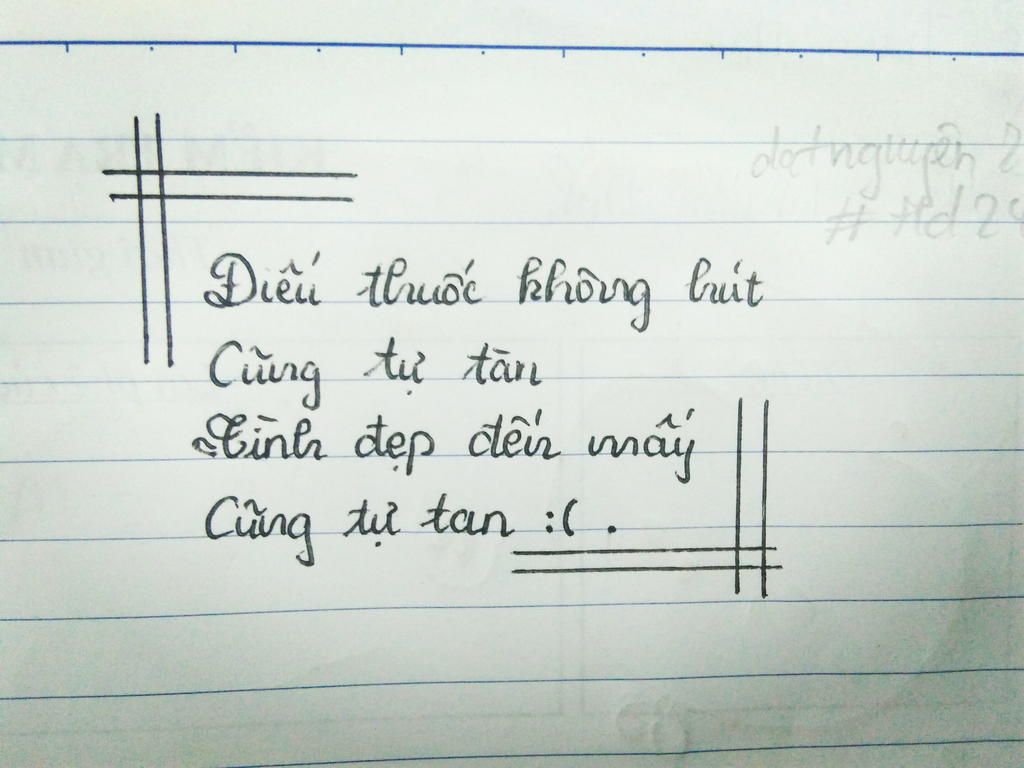 datnguyên 2
# Hd 24
Điếu thuốc không hút
Cũng tự tàn
Tình đẹp đến mấy
Cũng tự tan :( .